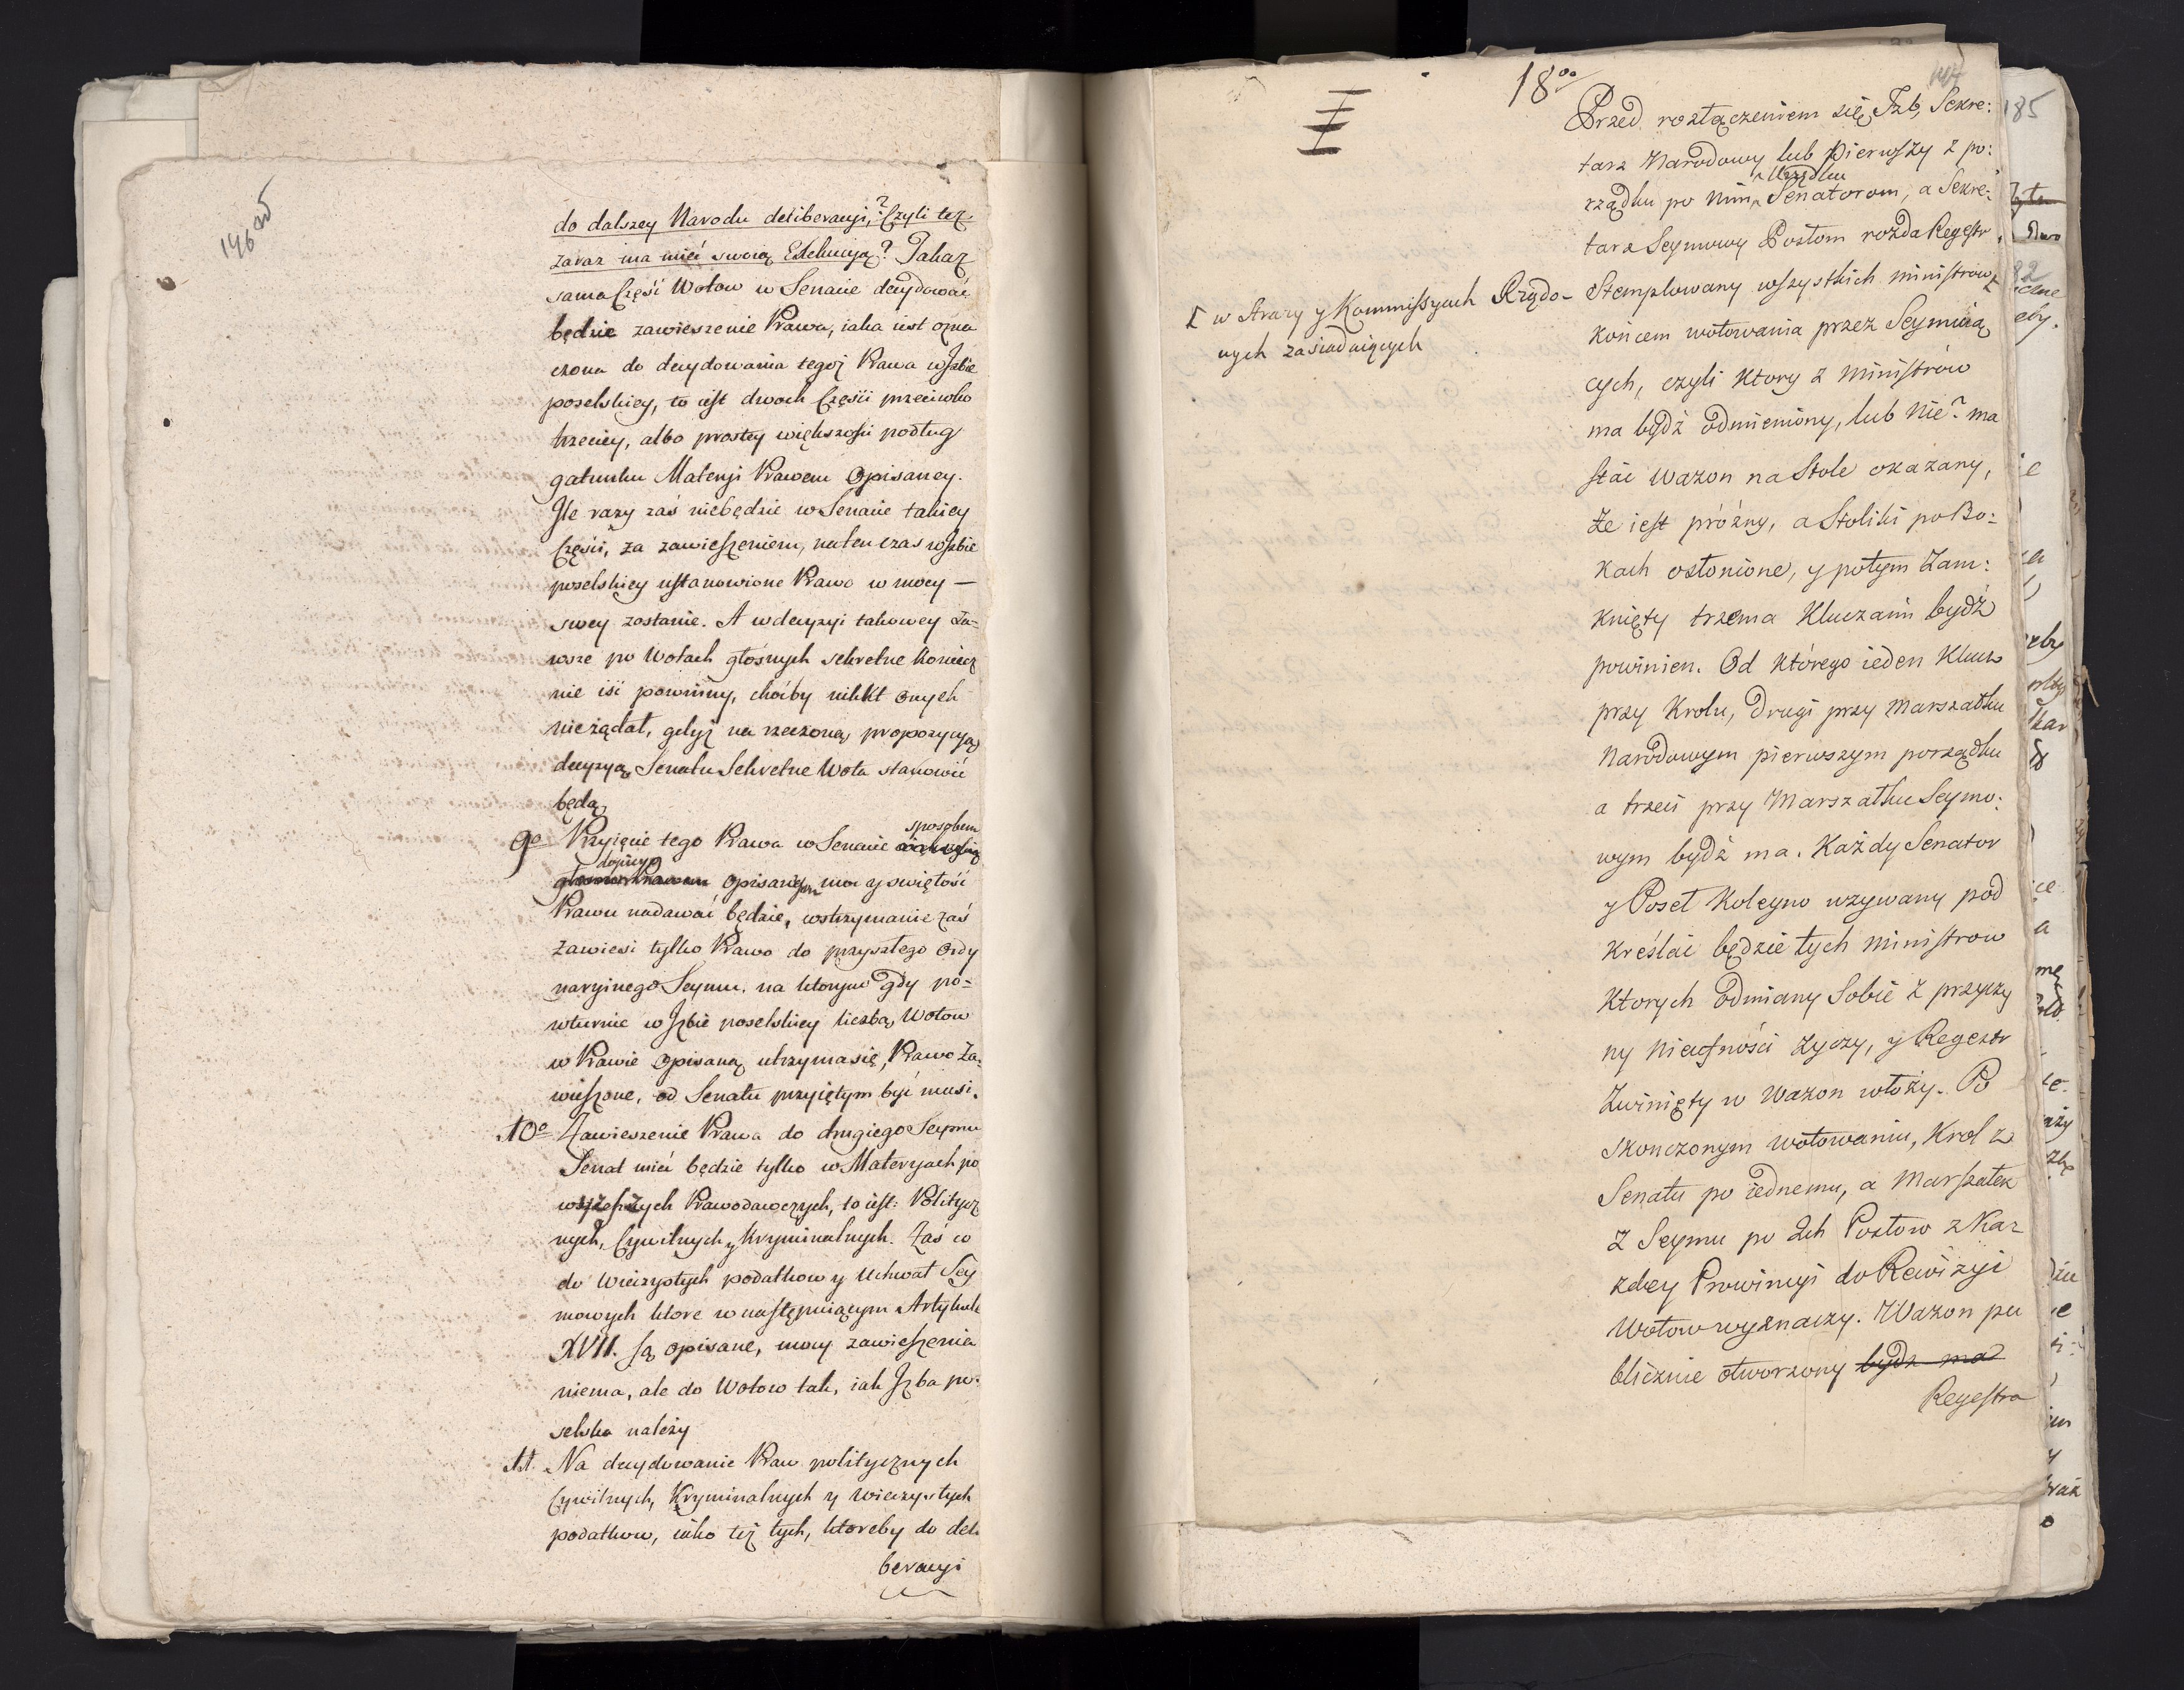 146
do dalszey Narodu deliberacyi,? Czyli też
zaraz ma mieć swoią Exekucyją? Takaż
sama Część Wotow w Senacie decydować
będzie zawieszenie Prawa, iaka iest ozna
czona do decydowania tegoż Prawa w Izbie
poselskiey, to iest dwoch Części przeciwko
trzeciey, albo prostey większości podług
gatunku Materyi Prawem Opisaney.
Ile razy zaś niebędzie w Senacie takiey
Części, za zawieszeniem, natenczas w Izbie
poselskiey ustanowione Prawo w mocy —
swey zostanie. A w decyzyi takowey Za-
wsze po Wotach głosnych sekretne koniecz
nie iść powinny, choćby nikkt Onych
nieżądał, gdyż na rzeczoną propozycyją
decyzyą Senatu Sekretne Wota stanowić
będą.
9o Przyięcie tego Prawa w Senacie sposobem
dopiero opisanym moc y swiętość
Prawu nadawać będzie, wstrzymanie zaś
zawiesi tylko Prawo do przyszłego Ordy
naryinego Seymu. na ktorym gdy po-
wturnie w Izbie poselskiey liczbą Wotow
w Prawie Opisaną utrzyma się, Prawo Za-
wieszone, od Senatu przyiętym być musi.
10o Zawieszenie Prawa do drugiego Seymu
Senat mieć będzie tylko w Materyach po
wszechnych Prawodawczych, to iest: Politycz
nych, Cywilnych y Kryminalnych. Zaś co
do Wieczystych podatkow y Uchwał Sey
mowych ktore w następuiącym Artykule
XVII. są opisane, mocy zawieszenia
niema, ale do Wotow tak, iak Izba po-
selska należy
11. Na decydowanie Praw politycznych
Cywilnych, Kryminalnych y Wieczystych
podatkow, iako też tych, ktoreby do deli
beracyi
18o
147
Przed rozłączeniem się Izb, Sekre:
tarz Narodowy lub Pierwszy z po:
Urzędu
rządku po nim Senatorom, a Sekre:
tarz Seymowy Posłom rozda Regestr
Stemplowany wszystkich ministrow
[ w Straży y Kommissyach Rządo-
wych zasiadaiących
końcem wotowania przez Seymuią
cych, czyli Ktory z Ministrów
ma bydź odmieniony, lub Nie? ma
stać Wazon na Stole okazany,
Że iest próżny, a Stoliki po Bo:
kach osłonione, y potym Zam:
knięty trzema Kluczami bydź
powinien. Od którego ieden Klucz
przy Krolu, Drugi przy Marszałku
Narodowym pierwszym porządku
a trzeci przy Marszałku Seymo:
wym bydź ma. Każdy Senator
y Poseł koleyno wzywany pod
kreślać będzie tych ministrow
Ktorych Odmiany Sobie z przyczy
ny Nieufności życzy, y Regestr
Zwinięty w Wazon włoży. Po
skonczonym wotowaniu, Krol z
Senatu po iednemu, a Marszałek
z Seymu po 2ch Posłow z Kaz
żdey Prowincyi do Rewizyi
Wotow wyznaczy. Wazon pu
blicznie otworzony bydz ma
Regestra
185